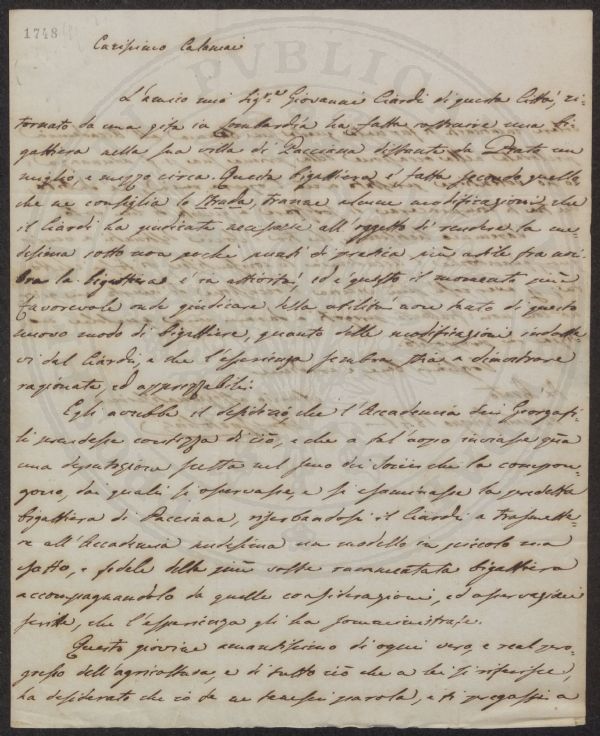 1748
Carissimo Calamai
L'amico mio Sig.re Giovanni Ciardi di questa Città, ri-
tornato da una gita in Lombardia ha fatto costruire una bi-
gattiera nella sua villa di Pacciana distante da Prato un
miglio, e mezzo circa. Questa bigattiera è fatta secondo quello
che ne consiglia lo Strada, tranne alcune modificazioni che
il Ciardi ha giudicate necessarie all'oggetto di rendere la me-
desima sotto non pochi punti di pratica più utile fra noi.
Ora la bigattiera è in attività, ed è questo il momento più
favorevole onde giudicare della utilità non tanto di questo
nuovo modo di bigattiere, quanto delle modificazioni indotte-
vi dal Ciardi, e che l'esperienza sembra a dimostrare
ragionate, ed apprezzabili.
Egli avrebbe il desiderio, che l'Accademia dei Georgofi-
li prendesse contezza di ciò, e che a tal uopo inviasse quà
una deputazione scelta nel seno dei Socii che la compon-
gono, dai quali si osservasse, e si esaminasse la predetta
bigattiera di Pacciana, riserbandosi il Ciardi a trasmette-
re all'Accademia medesima un modello in piccolo ma
esatto, e fedele della più volte rammentata bigattiera
accompagnandolo da quelle considerazioni, ed osservazioni
scritte, che l'esperienza gli ha somministrate.
Questo giovine amantissimo di ogni vero, e real pro-
gresso dell'agricoltura, e di tutto ciò che a lei si riferisce,
ha desiderato che io te ne tenessi parola, e ti pregassi a